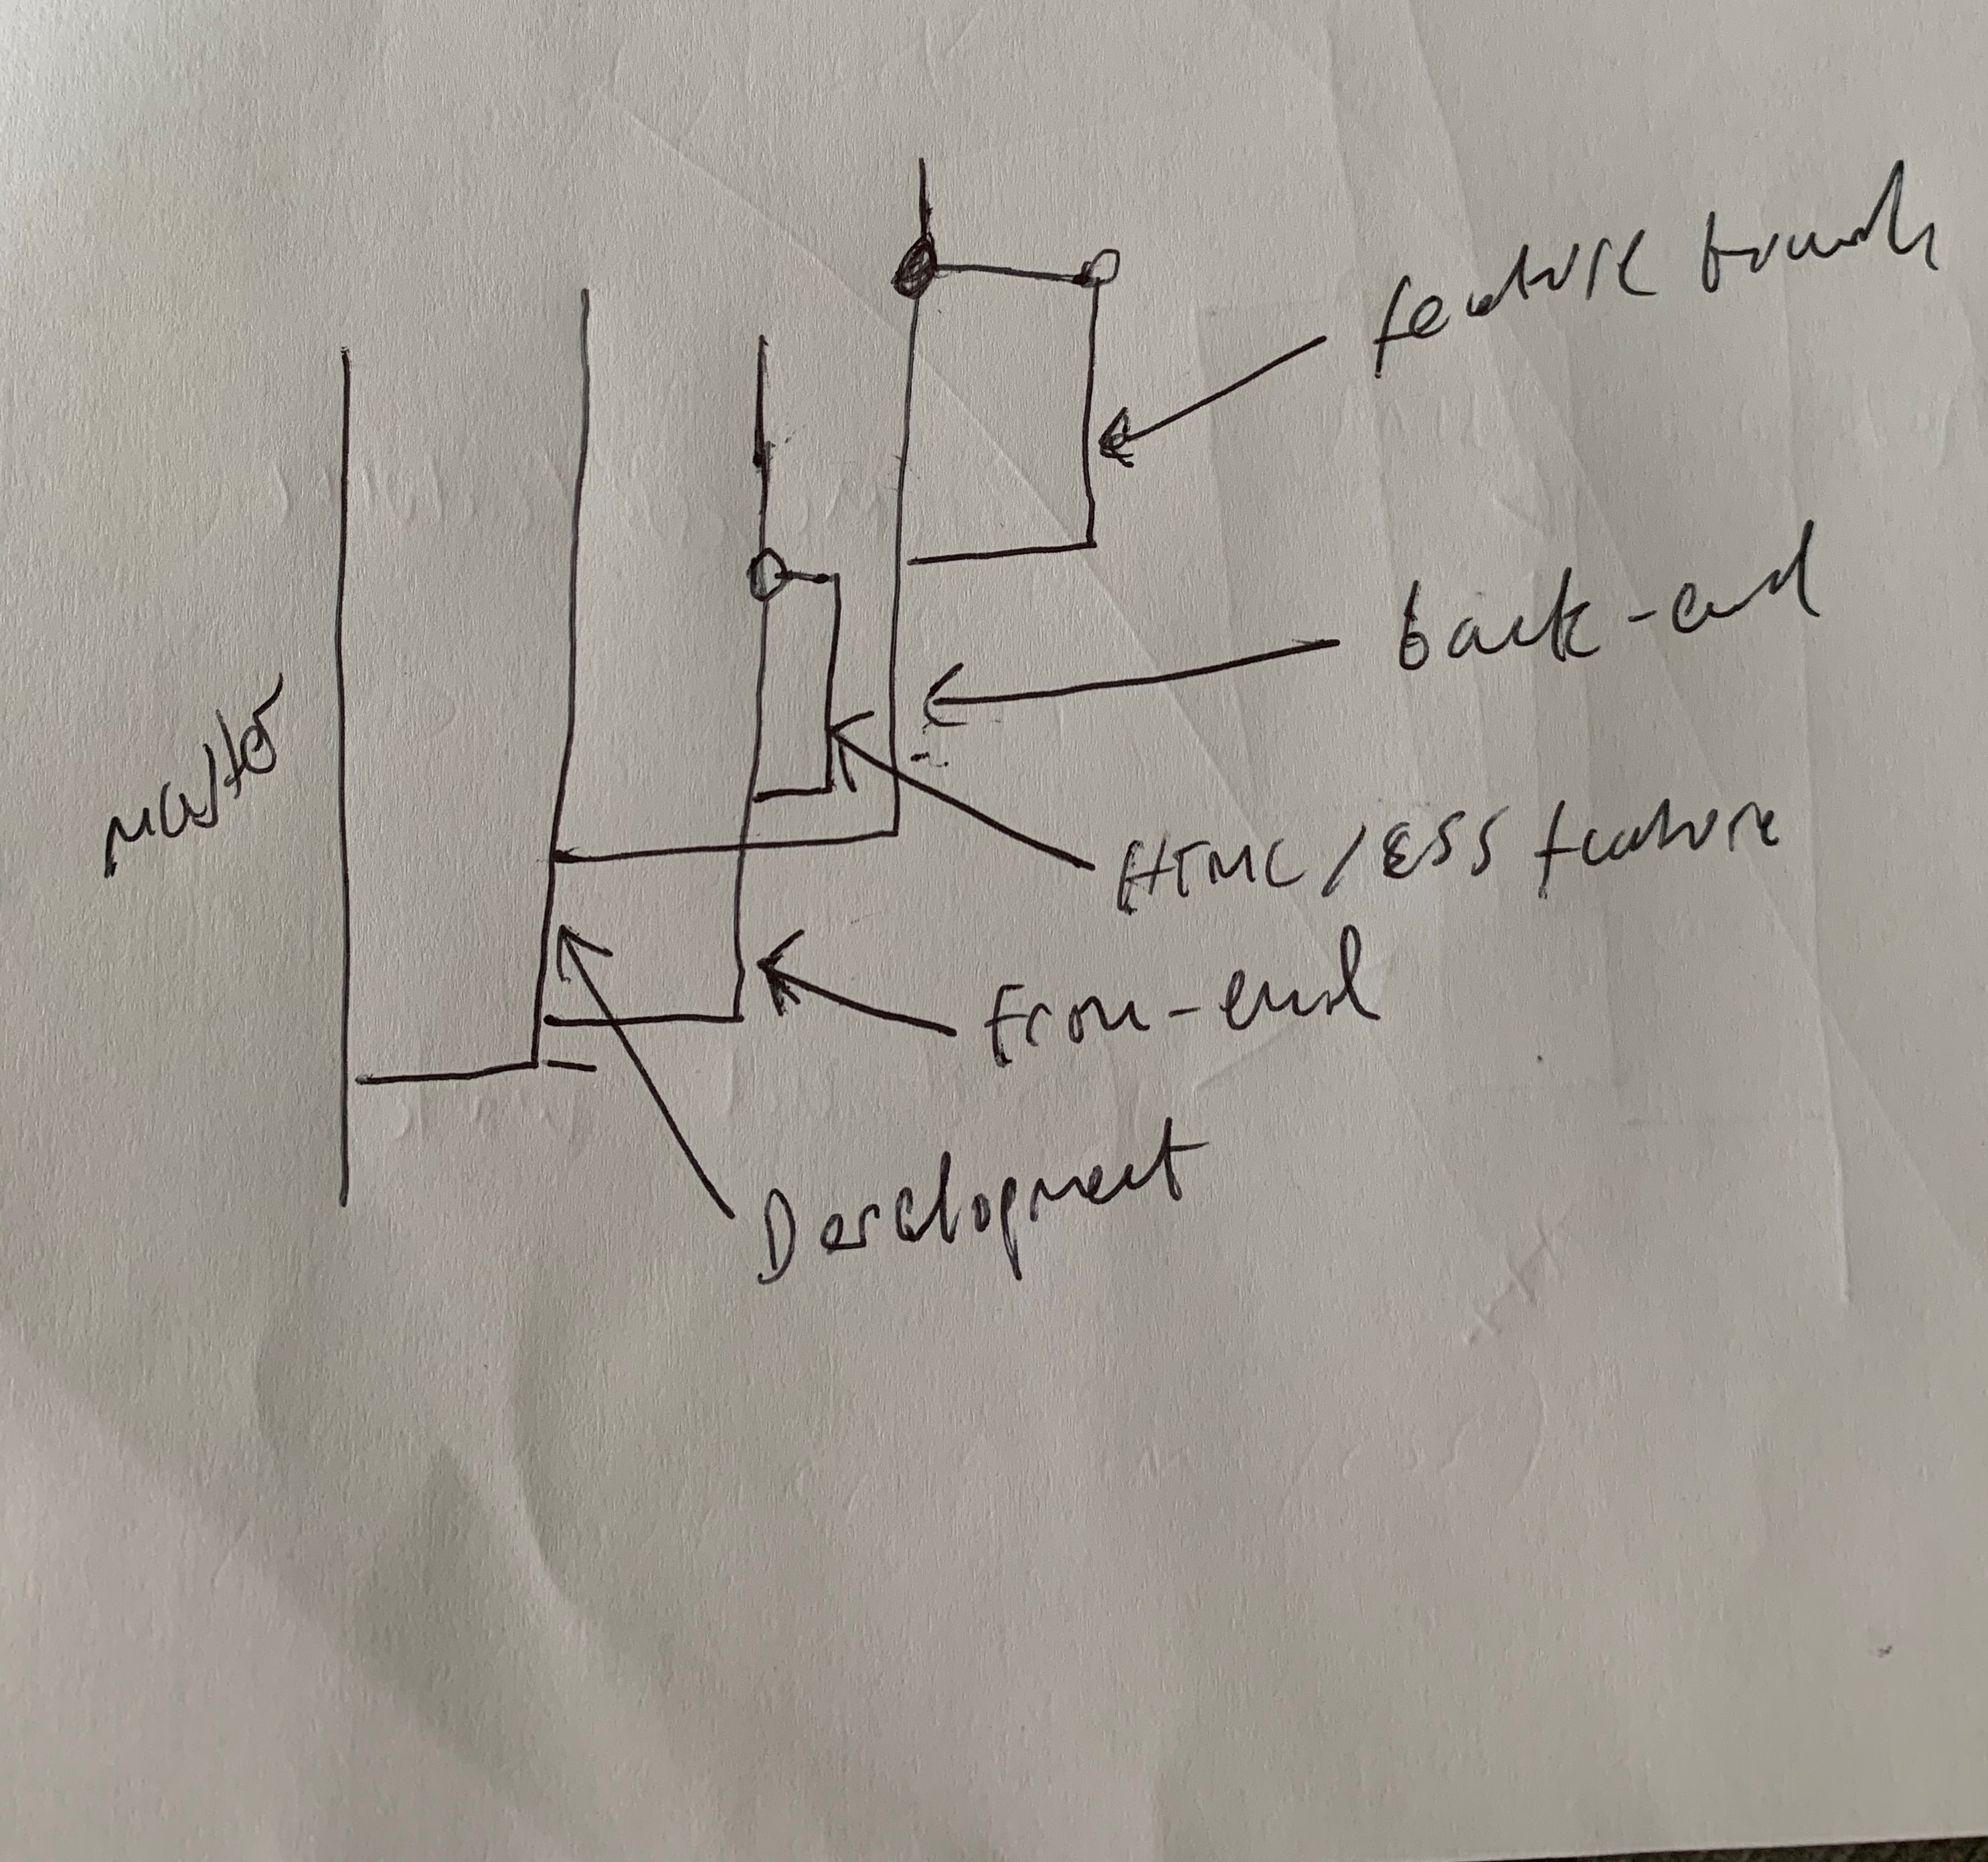 feature branch
back-end
master
HTML/CSS feature
Fron-end
Development